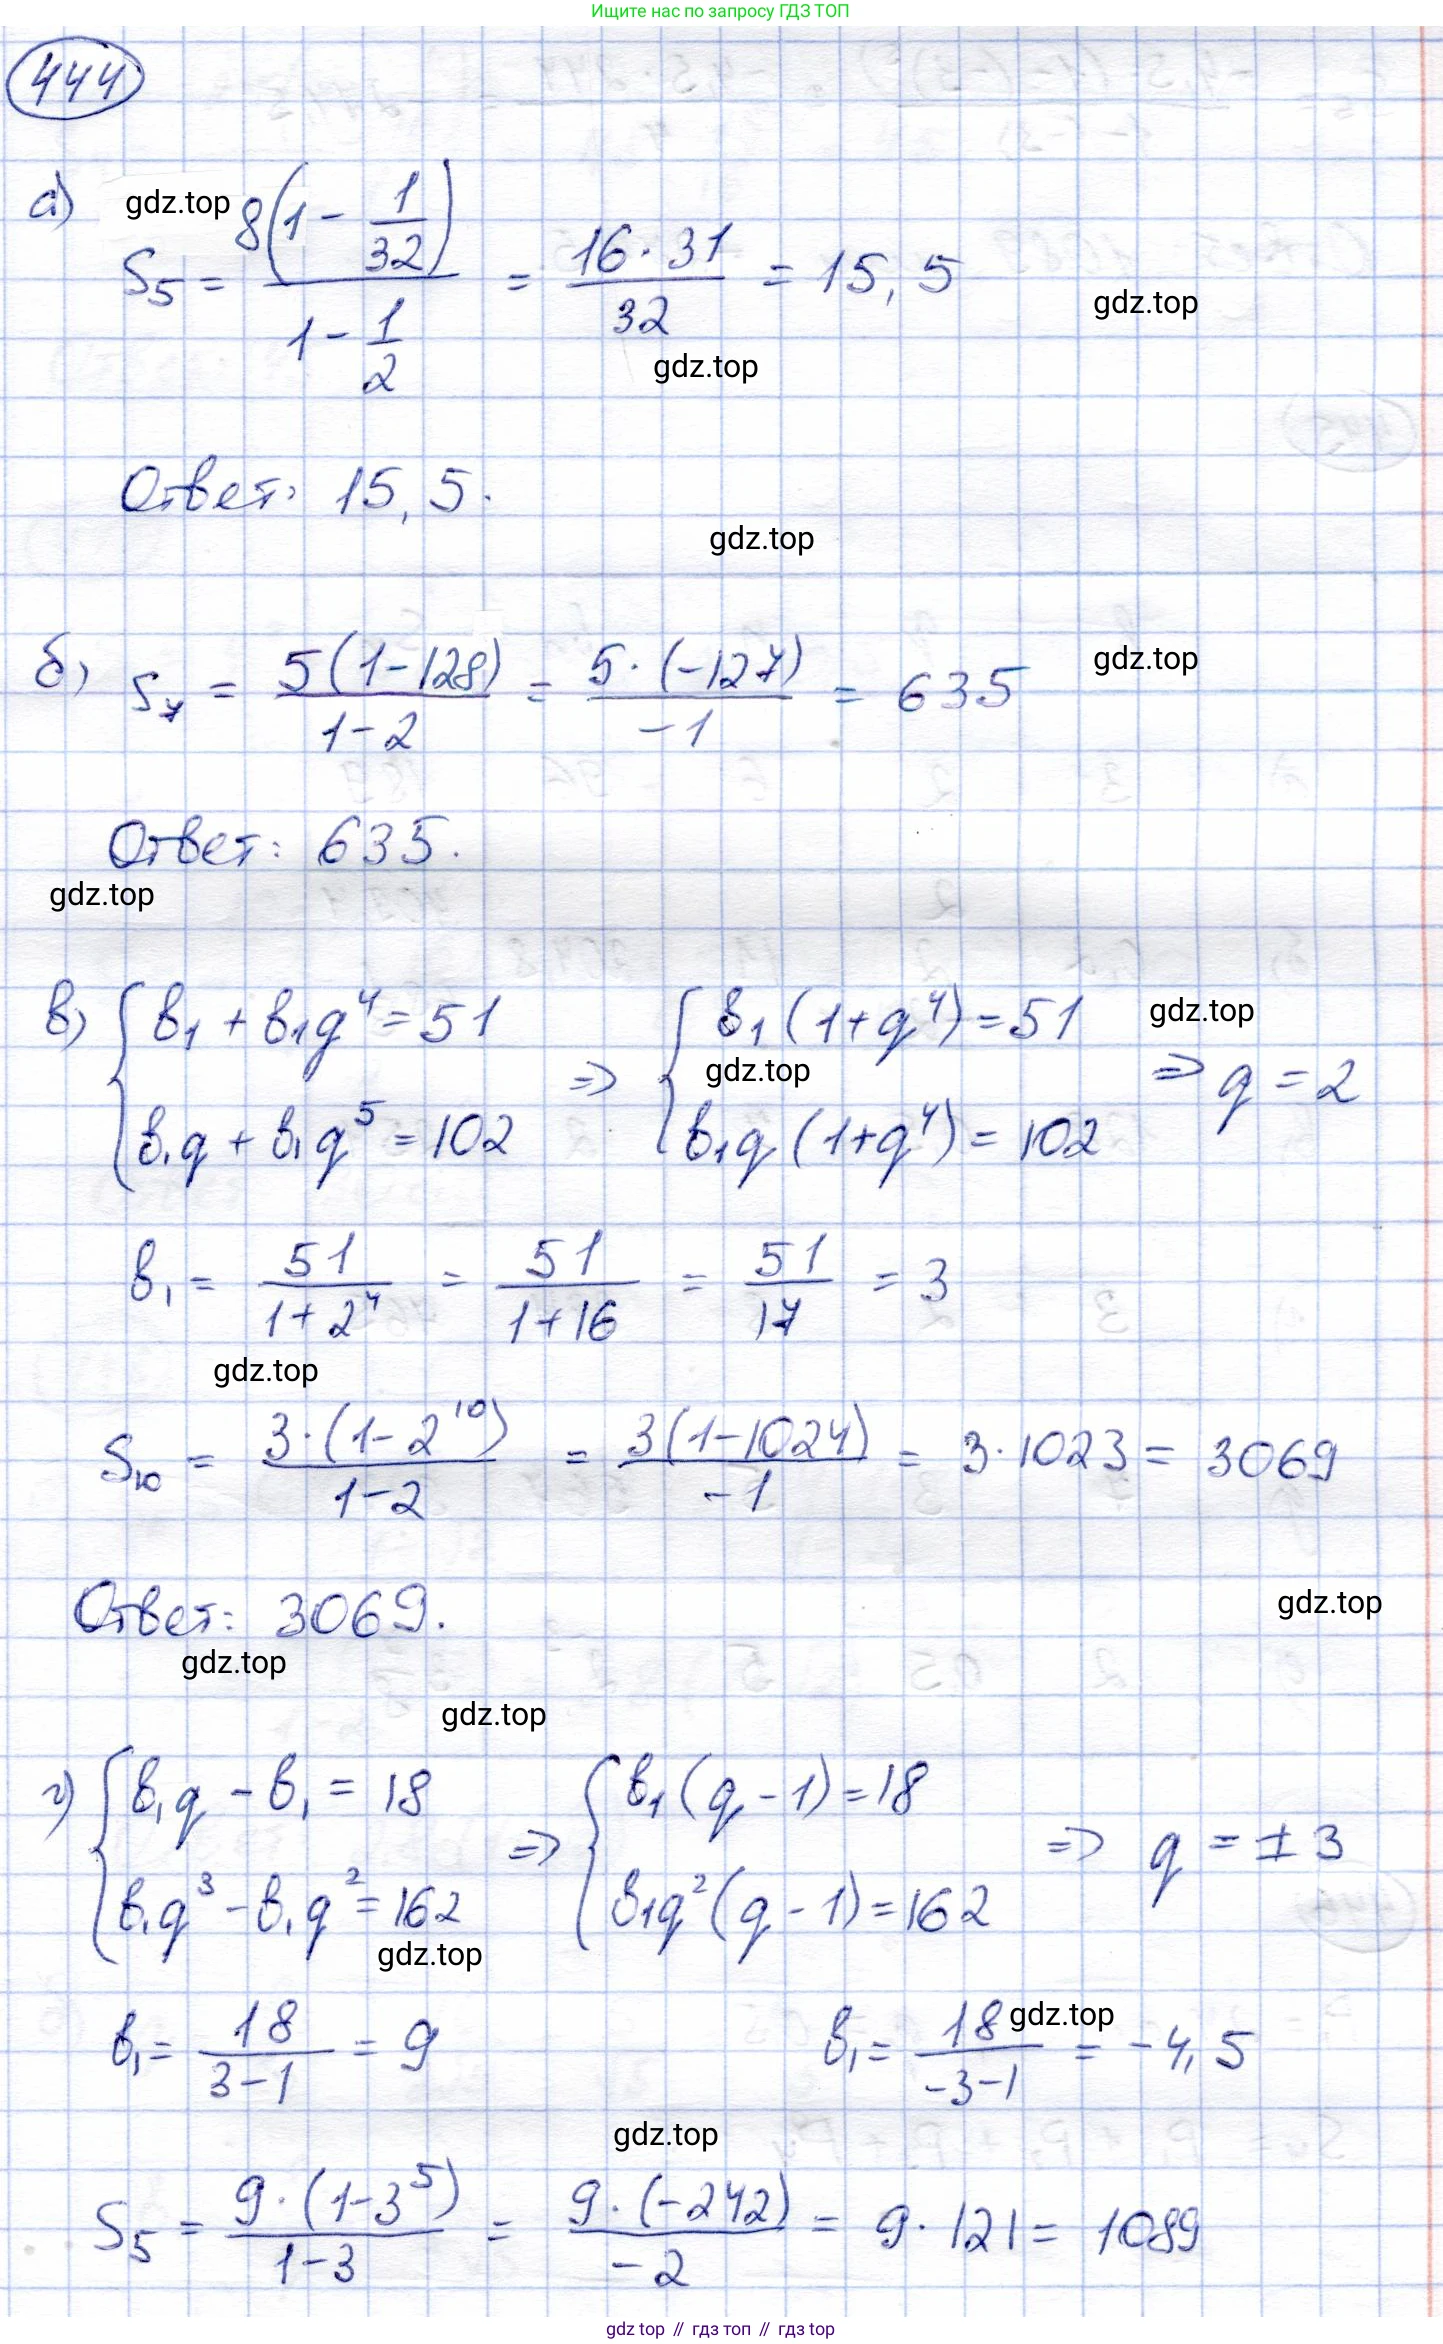 Ищите нас по запросу ГДЗ ТОП
444
а) S₅ = 8(1 - 1/32) / (1 - 1/2) = 16 · 31 / 32 = 15,5
gdz.top
gdz.top
gdz.top
Ответ: 15,5.
gdz.top
б) S₇ = 5(1-128) / (1-2) = 5·(-127) / -1 = 635
gdz.top
Ответ: 635.
gdz.top
в) { в₁ + в₁q⁴ = 51 ⇒ { в₁(1+q⁴) = 51 ⇒ q = 2
gdz.top
gdz.top
в₁q + в₁q⁵ = 102 в₁q(1+q⁴) = 102
в₁ = 51 / (1+2⁴) = 51 / (1+16) = 51 / 17 = 3
gdz.top
S₁₀ = 3·(1-2¹⁰) / (1-2) = 3(1-1024) / -1 = 3·1023 = 3069
Ответ: 3069.
gdz.top
gdz.top
gdz.top
г) { в₁q - в₁ = 18 ⇒ { в₁(q-1) = 18 ⇒ q = ±3
в₁q³ - в₁q² = 162 в₁q²(q-1) = 162
gdz.top
в₁ = 18 / (3-1) = 9 в₁ = 18 / (-3-1) = -4,5
gdz.top
gdz.top
S₅ = 9·(1-3⁵) / (1-3) = 9·(-242) / -2 = 9·121 = 1089
gdz top // гдз топ // гдз top